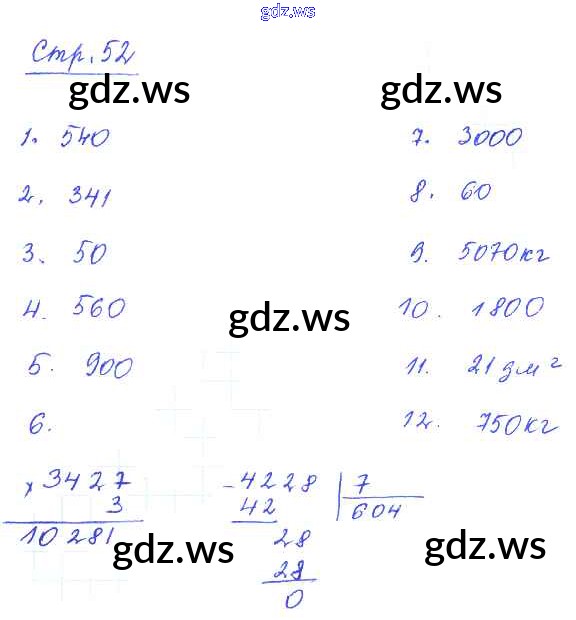 gdz.ws
Стр. 52
gdz.ws gdz.ws
1. 540
7. 3000
2. 341
8. 60
3. 50
9. 5070 кг
4. 560
10. 1800
gdz.ws
5. 900
11. 21 дм²
6.
12. 750 кг
× 3427
3
10281
- 4228 | 7
42 604
28
28
0
gdz.ws gdz.ws